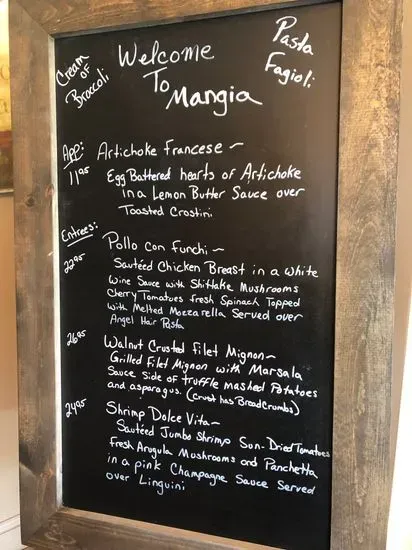 Cream
of
Broccoli
Welcome
To
Mangia
Pasta
Fagioli
App:
11.95
Artichoke Francese ~
Egg Battered hearts of Artichoke
in a Lemon Butter Sauce over
Toasted Crostini
Entrees:
Pollo con Funchi ~
22.95
Sautéed Chicken Breast in a white
Wine Sauce with Shittake Mushrooms
Cherry Tomatoes Fresh Spinach Topped
with Melted Mozzarella Served over
Angel Hair Pasta
26.95
Walnut Crusted Filet Mignon ~
Grilled Filet Mignon with Marsala
Sauce Side of truffle mashed Potatoes
and asparagus. (Crust has BreadCrumbs)
24.95
Shrimp Dolce Vita ~
Sautéed Jumbo Shrimp Sun-Dried Tomatoes
Fresh Arugula Mushrooms and Panchetta
in a pink Champagne Sauce Served
over Linguini